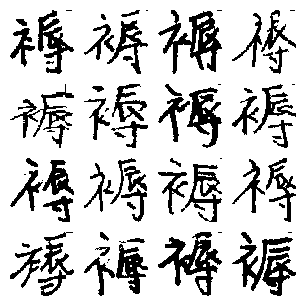 褥褥褥褥
褥褥褥褥
褥褥褥褥
褥褥褥褥